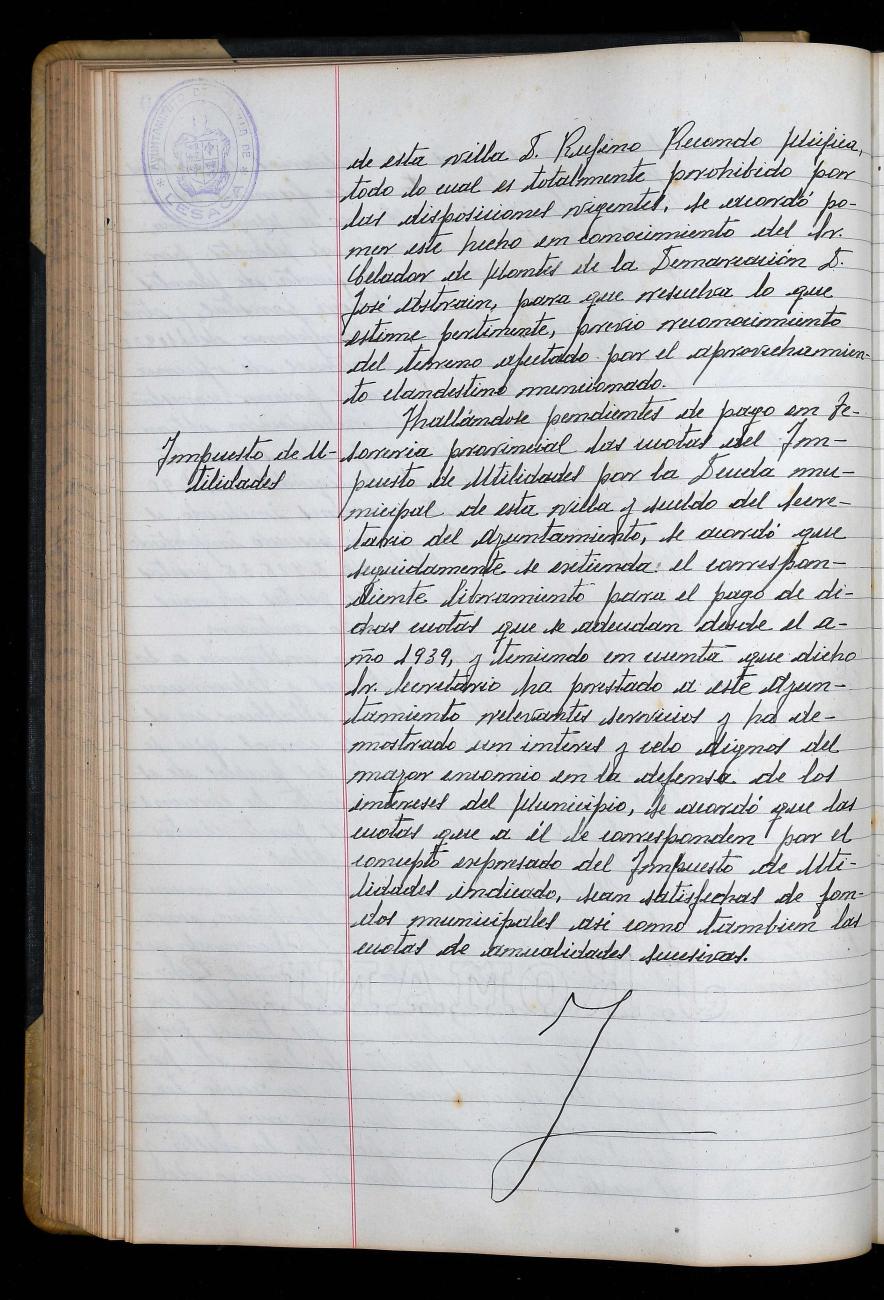 AYUNTAMIENTO DE LA VILLA DE
LESACA
de esta villa D. Rufino Recondo Mújica,
todo lo cual es totalmente prohibido por
las disposiciones vigentes, se acordó po-
ner este hecho en conocimiento del Sr.
Celador de Montes de la Demarcación D.
José Astrain, para que resuelva lo que
estime pertinente, previo reconocimiento
del terreno afectado por el aprovechamien-
to clandestino mencionado.
Hallándose pendientes de pago en Te-
Impuesto de U-
tilidades
sorería provincial las cuotas del Im-
puesto de Utilidades por la Deuda mu-
nicipal de esta villa y sueldo del Secre-
tario del Ayuntamiento, se acordó que
seguidamente se extienda el correspon-
diente libramiento para el pago de di-
chas cuotas que se adeudan desde el a-
ño 1939, y teniendo en cuenta que dicho
Sr. Secretario ha prestado a este Ayun-
tamiento relevantes servicios y ha de-
mostrado un interes y celo dignos del
mayor encomio en la defensa de los
intereses del Municipio, se acordó que las
cuotas que a él le corresponden por el
concepto expresado del Impuesto de Uti-
lidades indicado, sean satisfechas de fon-
dos municipales así como tambien las
cuotas de anualidades sucesivas.